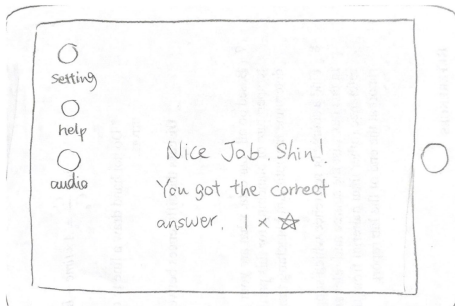 setting
help
audio
Nice Job. Shin!
You got the correct
answer. 1 × ☆